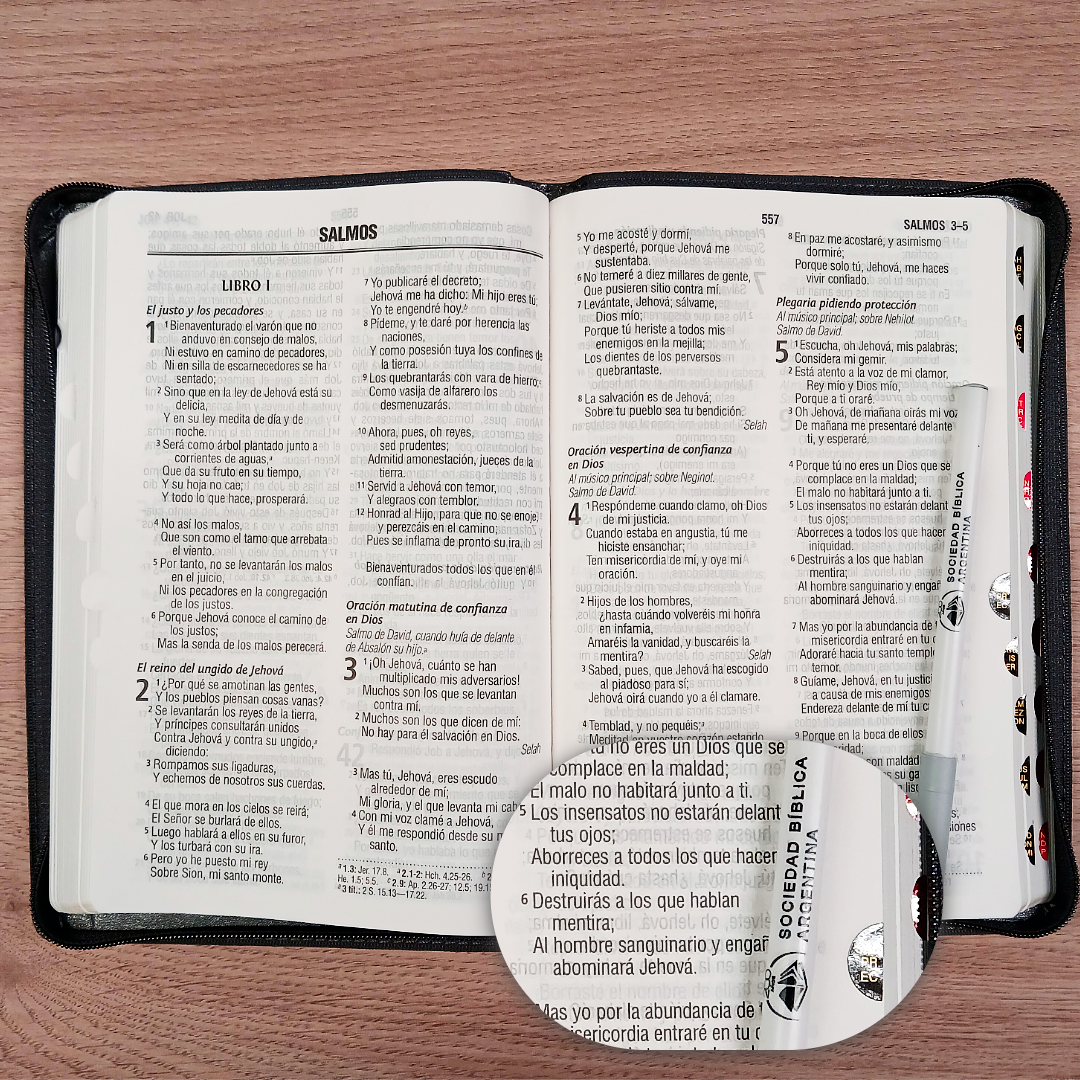 SALMOS
LIBRO I
El justo y los pecadores
1 1 Bienaventurado el varón que no
anduvo en consejo de malos,
Ni estuvo en camino de pecadores,
Ni en silla de escarnecedores se ha
sentado;
2 Sino que en la ley de Jehová está su
delicia,
Y en su ley medita de día y de
noche.
3 Será como árbol plantado junto a
corrientes de aguas,ᵃ
Que da su fruto en su tiempo,
Y su hoja no cae;
Y todo lo que hace, prosperará.
4 No así los malos,
Que son como el tamo que arrebata
el viento.
5 Por tanto, no se levantarán los malos
en el juicio,
Ni los pecadores en la congregación
de los justos;
6 Porque Jehová conoce el camino de
los justos;
Mas la senda de los malos perecerá.
El reino del ungido de Jehová
2 1 ¿Por qué se amotinan las gentes,
Y los pueblos piensan cosas vanas?
2 Se levantarán los reyes de la tierra,
Y príncipes consultarán unidos
Contra Jehová y contra su ungido,ᵃ
diciendo:
3 Rompamos sus ligaduras,
Y echemos de nosotros sus cuerdas.
4 El que mora en los cielos se reirá;
El Señor se burlará de ellos.
5 Luego hablará a ellos en su furor,
Y los turbará con su ira.
6 Pero yo he puesto mi rey
Sobre Sion, mi santo monte.
7 Yo publicaré el decreto;
Jehová me ha dicho: Mi hijo eres tú;
Yo te engendré hoy.ᵇ
8 Pídeme, y te daré por herencia las
naciones,
Y como posesión tuya los confines de
la tierra.
9 Los quebrantarás con vara de hierro;ᶜ
Como vasija de alfarero los
desmenuzarás.
10 Ahora, pues, oh reyes,
sed prudentes;
Admitid amonestación, jueces de la
tierra.
11 Servid a Jehová con temor,
Y alegraos con temblor.
12 Honrad al Hijo, para que no se enoje,
y perezcáis en el camino;
Pues se inflama de pronto su ira.
Bienaventurados todos los que en él
confían.
Oración matutina de confianza
en Dios
Salmo de David, cuando huía de delante
de Absalón su hijo.ᵃ
3 1 ¡Oh Jehová, cuánto se han
multiplicado mis adversarios!
Muchos son los que se levantan
contra mí.
2 Muchos son los que dicen de mí:
No hay para él salvación en Dios.
Selah
3 Mas tú, Jehová, eres escudo
alrededor de mí;
Mi gloria, y el que levanta mi
4 Con mi voz clamé a Jehová,
Y él me respondió desde su
santo.
ᵃ 1.3: Jer. 17.8. ᵃ 2.1-2: Hch. 4.25-26.
He. 1.5; 5.5. ᶜ 2.9: Ap. 2.26-27; 12.5;
ᵃ 3 tít.: 2 S. 15.13—17.22.
557
SALMOS 3–5
5 Yo me acosté y dormí,
Y desperté, porque Jehová me
sustentaba.
6 No temeré a diez millares de gente,
Que pusieren sitio contra mí.
7 Levántate, Jehová; sálvame,
Dios mío;
Porque tú heriste a todos mis
enemigos en la mejilla;
Los dientes de los perversos
quebrantaste.
8 La salvación es de Jehová;
Sobre tu pueblo sea tu bendición.
Selah
Oración vespertina de confianza
en Dios
Al músico principal; sobre Neginot.
Salmo de David.
4 1 Respóndeme cuando clamo, oh Dios
de mi justicia.
Cuando estaba en angustia, tú me
hiciste ensanchar;
Ten misericordia de mí, y oye mi
oración.
2 Hijos de los hombres,
¿hasta cuándo volveréis mi honra
en infamia,
Amaréis la vanidad, y buscaréis la
mentira? Selah
3 Sabed, pues, que Jehová ha escogido
al piadoso para sí;
Jehová oirá cuando yo a él clamare.
4 Temblad, y no pequéis;ᵃ
Meditad en vuestro corazón estando
8 En paz me acostaré, y asimismo
dormiré;
Porque solo tú, Jehová, me haces
vivir confiado.
Plegaria pidiendo protección
Al músico principal; sobre Nehilot.
Salmo de David.
5 1 Escucha, oh Jehová, mis palabras;
Considera mi gemir.
2 Está atento a la voz de mi clamor,
Rey mío y Dios mío,
Porque a ti oraré.
3 Oh Jehová, de mañana oirás mi voz;
De mañana me presentaré delante
ti, y esperaré.
4 Porque tú no eres un Dios que se
complace en la maldad;
El malo no habitará junto a ti.
5 Los insensatos no estarán delant
tus ojos;
Aborreces a todos los que hacen
iniquidad.
6 Destruirás a los que hablan
mentira;
Al hombre sanguinario y engañ
abominará Jehová.
7 Mas yo por la abundancia de
misericordia entraré en tu c
Adoraré hacia tu santo templ
temor.
8 Guíame, Jehová, en tu justici
a causa de mis enemigos
Endereza delante de mí tu c
9 Porque en la boca de ellos
SOCIEDAD BÍBLICA
ARGENTINA
tú no eres un Dios que se
complace en la maldad;
El malo no habitará junto a ti.
5 Los insensatos no estarán delant
tus ojos;
Aborreces a todos los que hacer
iniquidad.
6 Destruirás a los que hablan
mentira;
Al hombre sanguinario y engañ
abominará Jehová.
Mas yo por la abundancia de
sericordia entraré en tu c
SOCIEDAD BÍBLICA
ARGENTINA